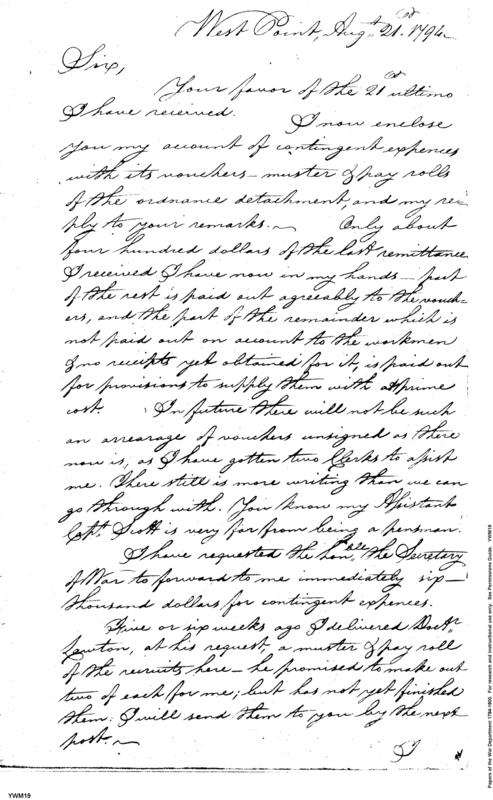 West Point, Augt. 21st. 1794
Sir,
Your favor of the 21st ultimo
I have received. I now enclose
you my account of contingent expences
with its vouchers - muster & pay rolls
of the ordnance detachment, and my re-
ply to your remarks. ~ Only about
four hundred dollars of the last remittance
I received I have now in my hands - part
of the rest is paid out agreeably to the vouch-
ers, and the part of the remainder which is
not paid out on account to the workmen
& no receipts yet obtained for it, is paid out
for provisions to supply them with at prime
cost. In future there will not be such
an arrearage of vouchers unsigned as there
now is, as I have gotten two Clerks to assist
me. There still is more writing than we can
go through with. You know my Assistant
Capt. Scott is very far from being a penman.
I have requested the honble. the Secretary
of War to forward to me immediately six -
thousand dollars for contingent expences.
Five or six weeks ago I delivered Doctr.
at his request, a muster & pay roll
of the recruits here - he promised to make out
two of each for me; but has not yet finished
them. I will send them to you by the next
post. ~
I
YWM19
Papers of the War Department 1784-1800. For research and instructional use only. See Permissions Guide. YWM19